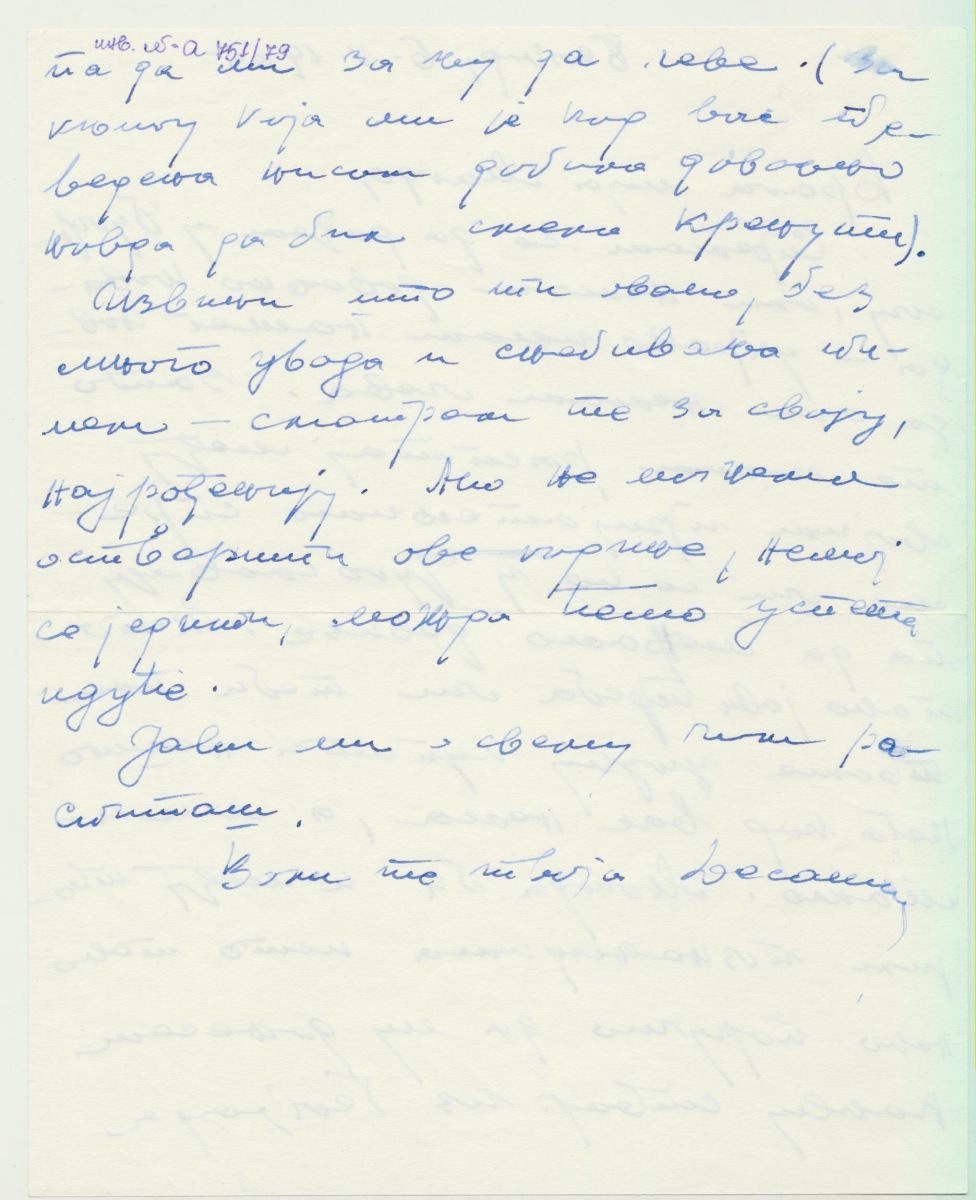 инв. М-А 751/79
па да ми за њу да леве. (За
књигу која ми је код вас пре-
ведена нисам добила довољно
новца да бих смела кренути).
Извини што ти овако, без
много увода и снебивања пи-
шем – сматрам те за своју,
најрођенију. Ако не можемо
остварити ове године, немој
се једити, можда ћемо успети
идуће.
Јави ми о свему чим ра-
спиташ.
Воли те твоја Десанка